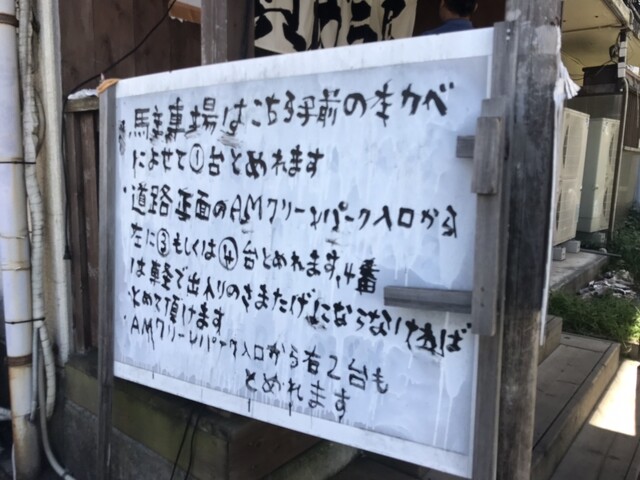 駐車場はこちら手前の木カベ
によせて①台とめれます
・道路正面のAMクリーンパーク入口から
左に③もしくは④台とめれます,4番
は軽で出入りのさまたげにならなければ
とめて頂けます
・AMクリーンパーク入口から右2台も
とめれます